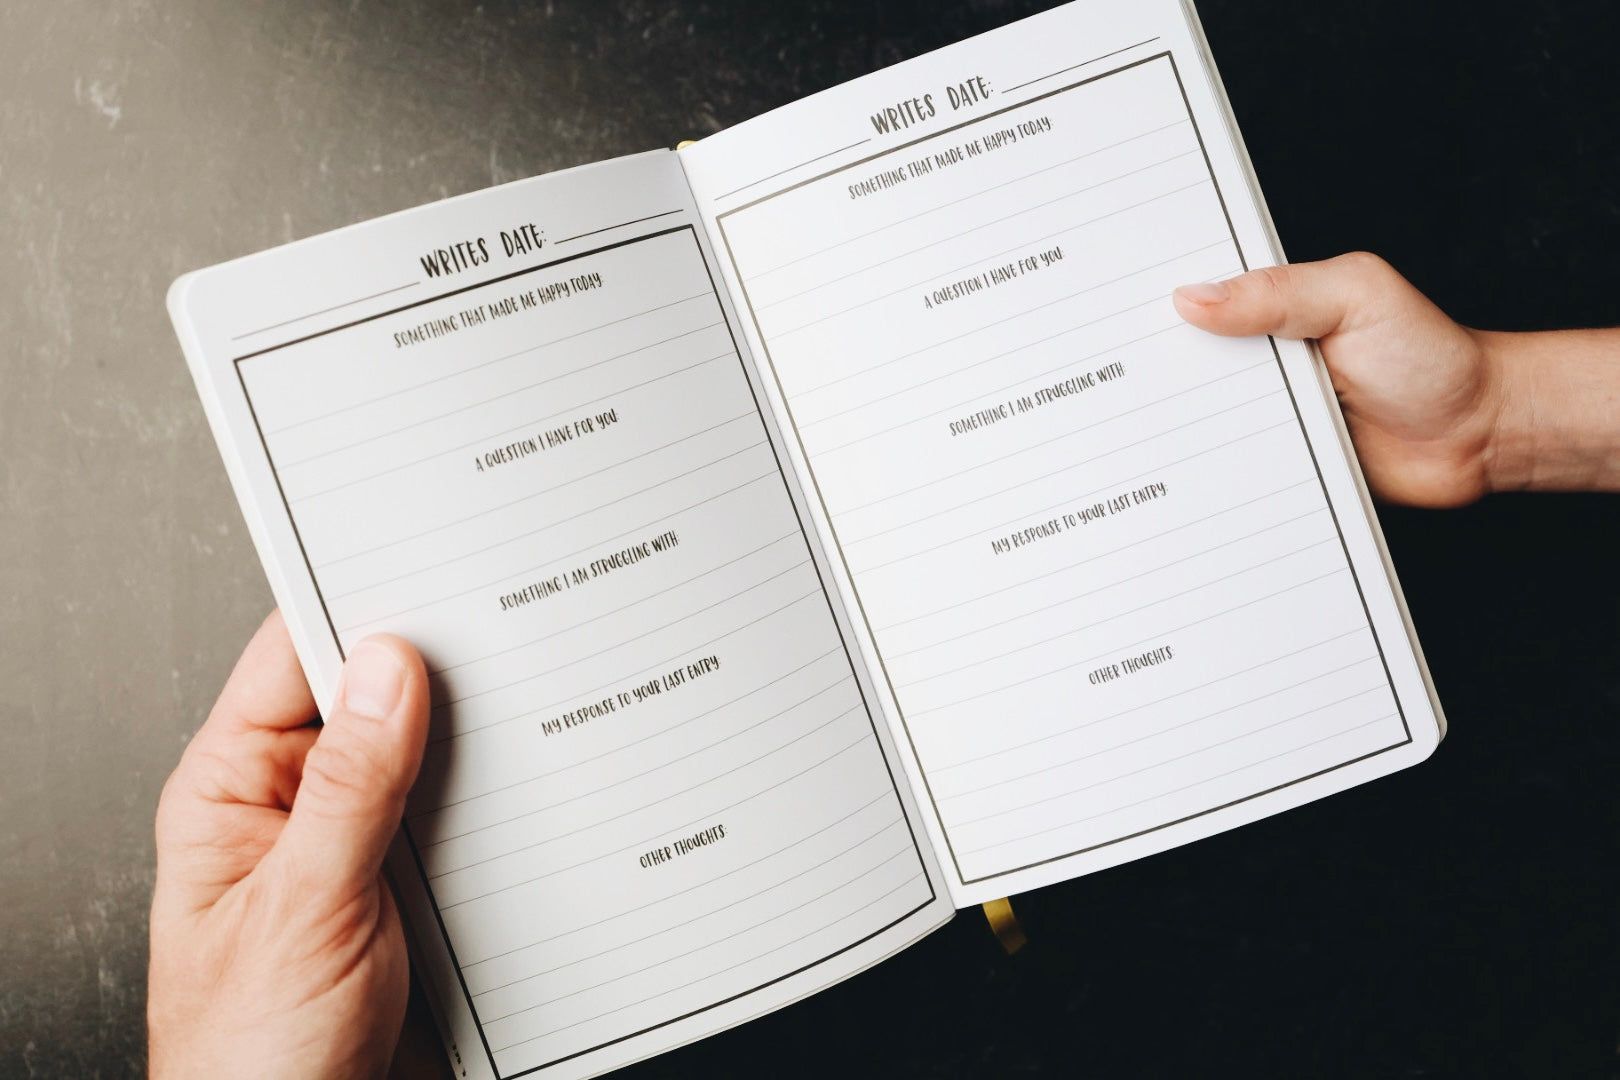 WRITES DATE:
SOMETHING THAT MADE ME HAPPY TODAY:
A QUESTION I HAVE FOR YOU:
SOMETHING I AM STRUGGLING WITH:
MY RESPONSE TO YOUR LAST ENTRY:
OTHER THOUGHTS:
WRITES DATE:
SOMETHING THAT MADE ME HAPPY TODAY:
A QUESTION I HAVE FOR YOU:
SOMETHING I AM STRUGGLING WITH:
MY RESPONSE TO YOUR LAST ENTRY:
OTHER THOUGHTS: